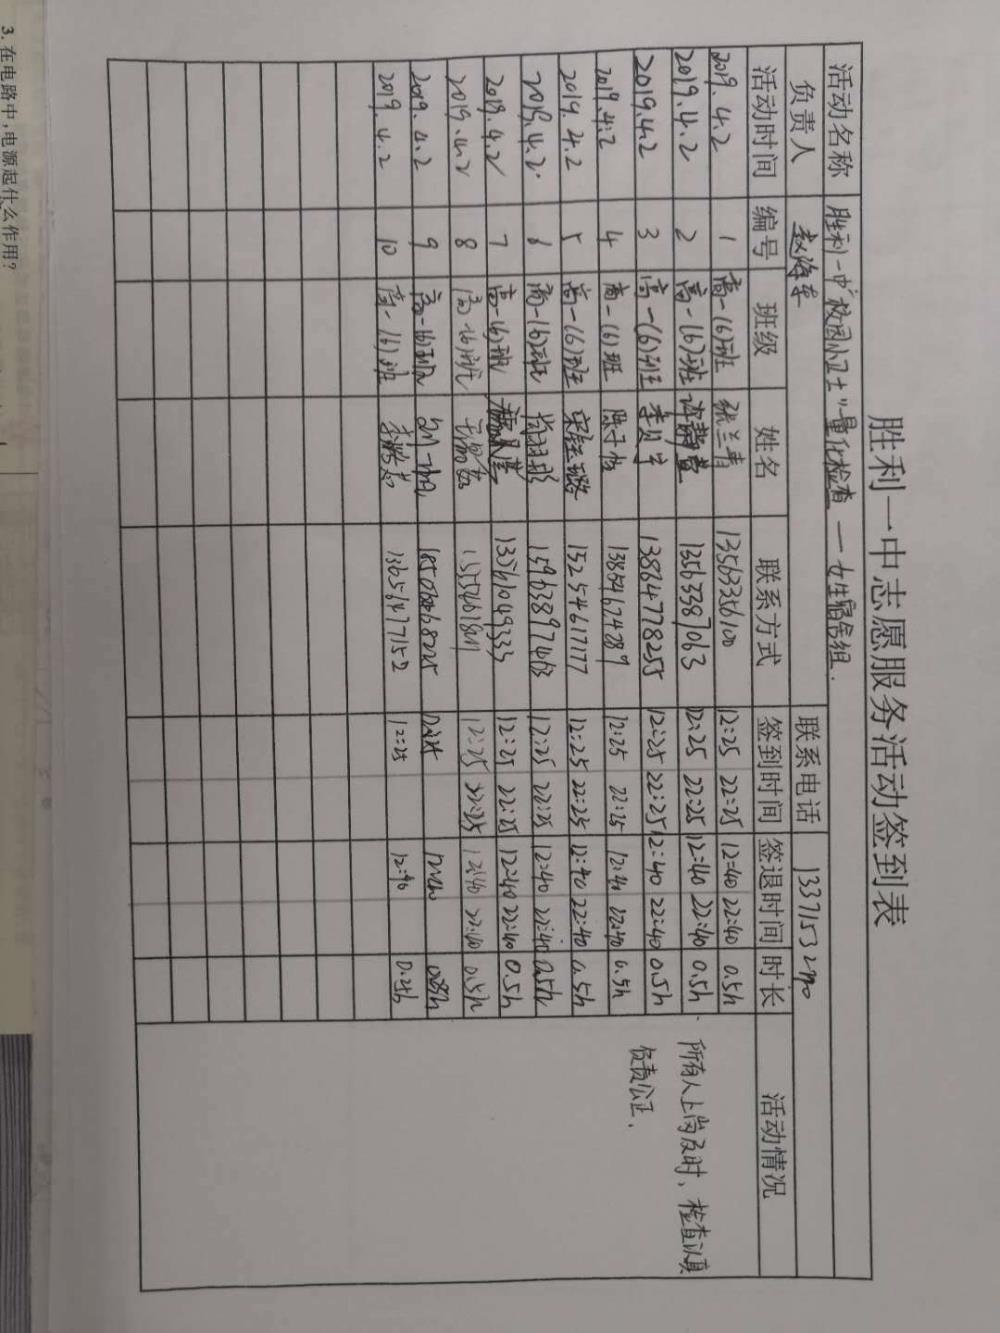 胜利一中志愿服务活动签到表
活动名称 胜利一中"校园小卫士"量化检查——女生宿舍组.
负责人 赵海军 联系电话
活动时间 编号 班级 姓名 联系方式 签到时间 签退时间 时长 活动情况
2019.4.2 1 高一(6)班 张兰青 13563356100 12:25 22:25 12:40 22:40 0.5h
2019.4.2 2 高一(6)班 13563387063 12:25 22:25 12:40 22:40 0.5h
2019.4.2 3 高一(6)班 李贝宁 13864778255 12:25 22:25 12:40 22:40 0.5h
2019.4.2 4 高一(6)班 陈子怡 13854674289 12:25 22:25 12:40 22:40 0.5h
2019.4.2 5 高一(6)班 15254617177 12:25 22:25 12:40 22:40 0.5h
2019.4.2. 6 高一(6)班 15963897463 12:25 22:25 12:40 22:40 0.5h
2019.4.2 7 高一(6)班 12:25 22:25 12:40 22:40 0.5h
2019.4.2 8 高一(6)班 12:25 22:25 12:40 22:40 0.5h
2019.4.2 9 高一(6)班
2019.4.2 10 高一(6)班 13625477152 12:25 12:40
所有人上岗及时、检查认真
负责公正.
3. 在电路中,电源起什么作用?